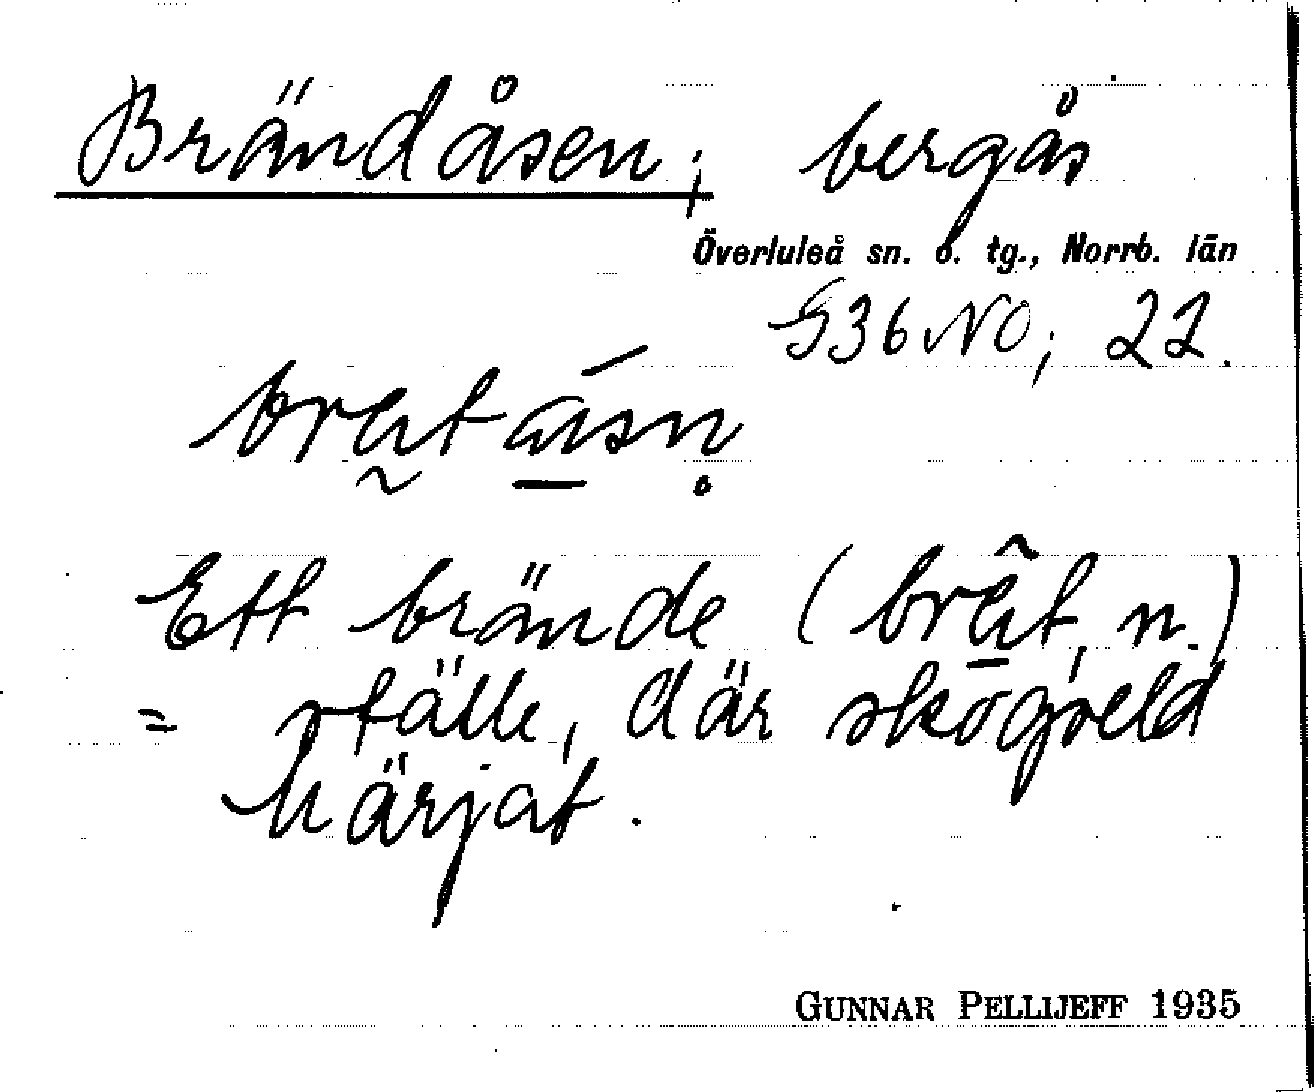 Brändåsen; bergås
Överluleå sn. o. tg., Norrb. län
G36NO; 22.
Ett brände (
n.)
= ställe, där skogseld
härjat.
GUNNAR PELLIJEFF 1935